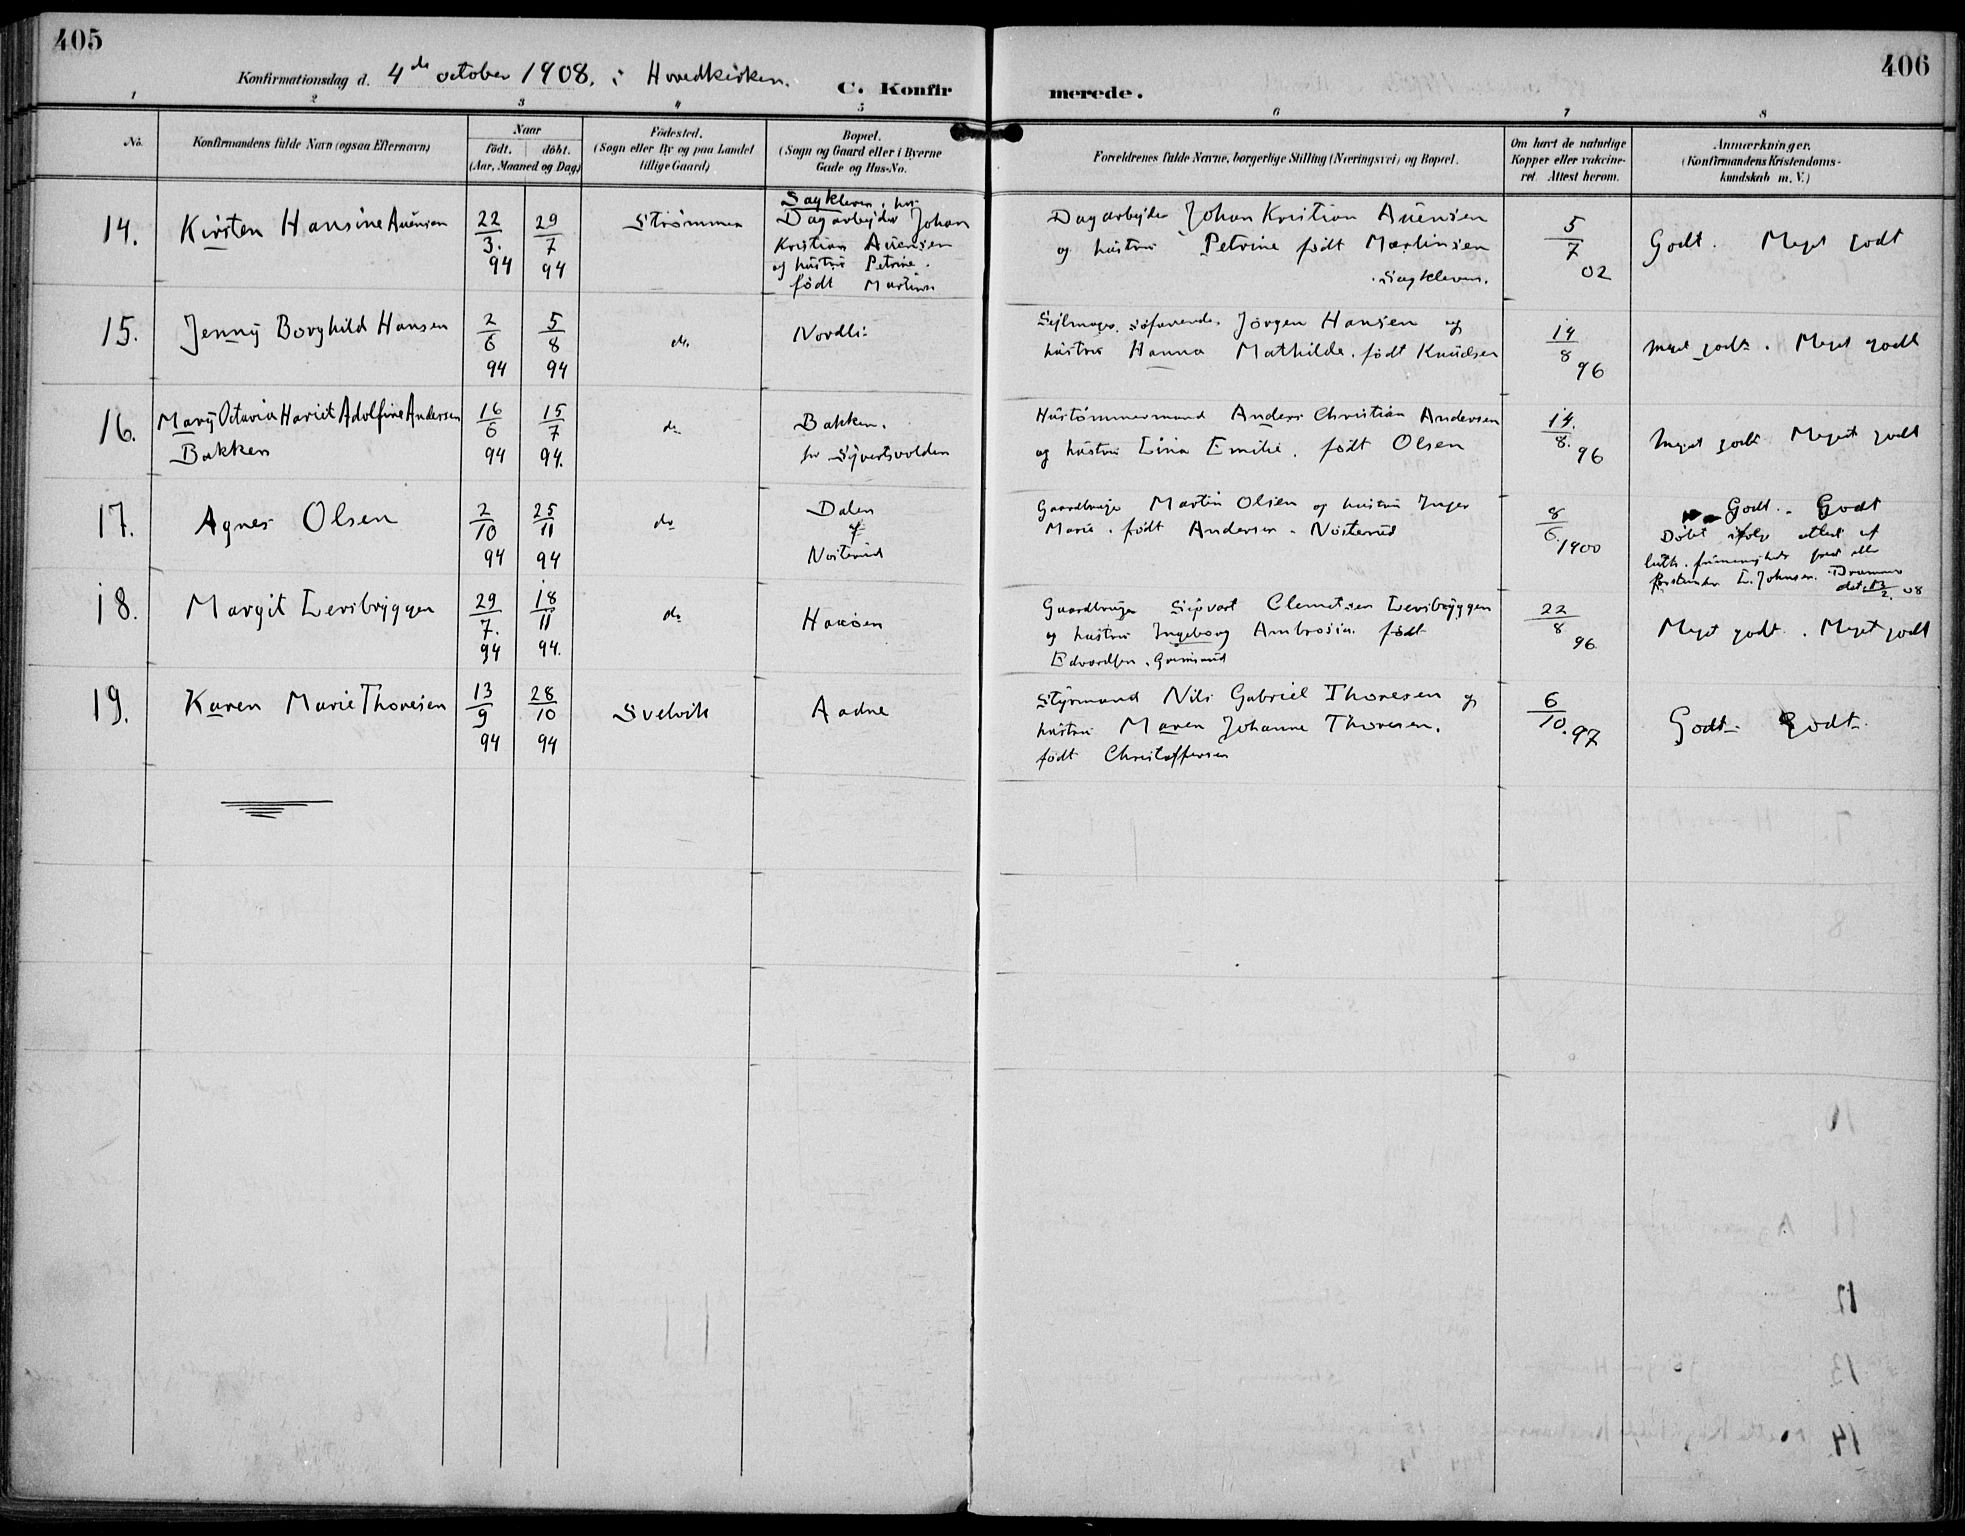 405
406
Konfirmationsdag d. 4de october 1908. i Hovedkirken.
C. Konfirmerede.
1 2 3 4 5 6 7 8
No.
Konfirmandens fulde Navn (ogsaa Efternavn)
Naar
født. døbt.
(Aar, Maaned og Dag)
Fødested.
(Sogn eller By og paa Landet
tillige Gaard)
Bopæl.
(Sogn og Gaard eller i Byerne
Gade og Hus-No.
Forældrenes fulde Navne, borgerlige Stilling (Næringsvei) og Bopæl.
Om havt de naturlige
Kopper eller vakcine-
ret. Attest herom.
Anmærkninger.
(Konfirmandens Kristendoms-
kundskab m. V.)
14. Kirsten Hansine Auensen
22/3. 94
29/7 94
Strømmen
Sagkleven, hos
Dagarbejder Johan
Kristian Auensen
og hustru Petrine.
født Martinsen
Dagarbejder Johan Kristian Auensen
og hustru Petrine født Martinsen
Sagkleven.
5/7 02
Godt. Meget godt
15. Jenny Borghild Hansen
2/6 94
5/8 94
do.
Nordli
Sejlmager, søfarende, Jørgen Hansen og
hustru Hanna Mathilde. født Knudsen
14/8 96
Meget godt. Meget godt
16. Mary Octavia Hariet Adolfine Andersen
Bakken
16/6 94
15/7 94.
do
Bakken.
Syvertsvolden
Hustømmermand Anders Christian Andersen
og hustru Lina Emilie. født Olsen
14./8. 96
Meget godt Meget godt
17. Agnes Olsen
2/10 94
25/11 94
do
Dalen
af
Nosterud
Gaardbruger Martin Olsen og hustru Inger
Marie. født Andersen - Nosterud
8/6. 1900
Godt. Godt
Døbt ifølge attest af
luth. frimenigheds prest eller
forstander L. Johnsen. Drammen
det 13/2. 08
18. Margit Lersbryggen
29/7. 94
18/11 94.
do
Hausen
Gaardbruger Sigvart Clemetsen Lersbryggen
og hustru Ingeborg Ambrosia. født
Edvardsen.
22/8 96
Meget godt. Meget godt
19. Karen Marie Thoresen
13/9 94
28/10 94
Svelvik
Aadne
Styrmand Nils Gabriel Thoresen og
hustru Maren Johanne Thoresen.
født Christoffersen
6/10. 97
Godt. Godt.